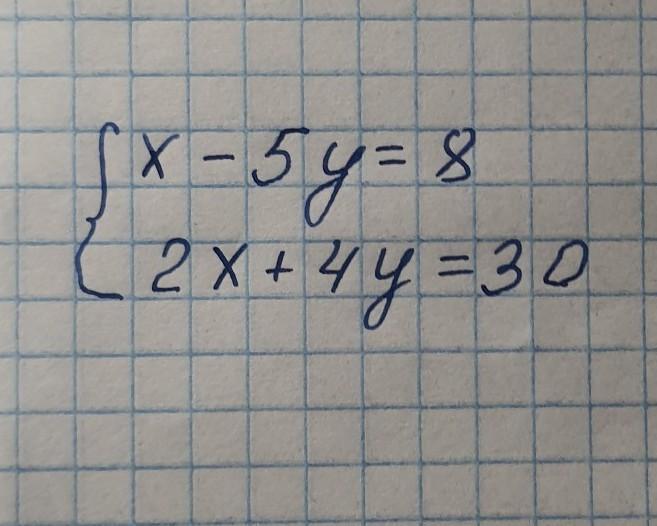 x - 5y = 8
2x + 4y = 30